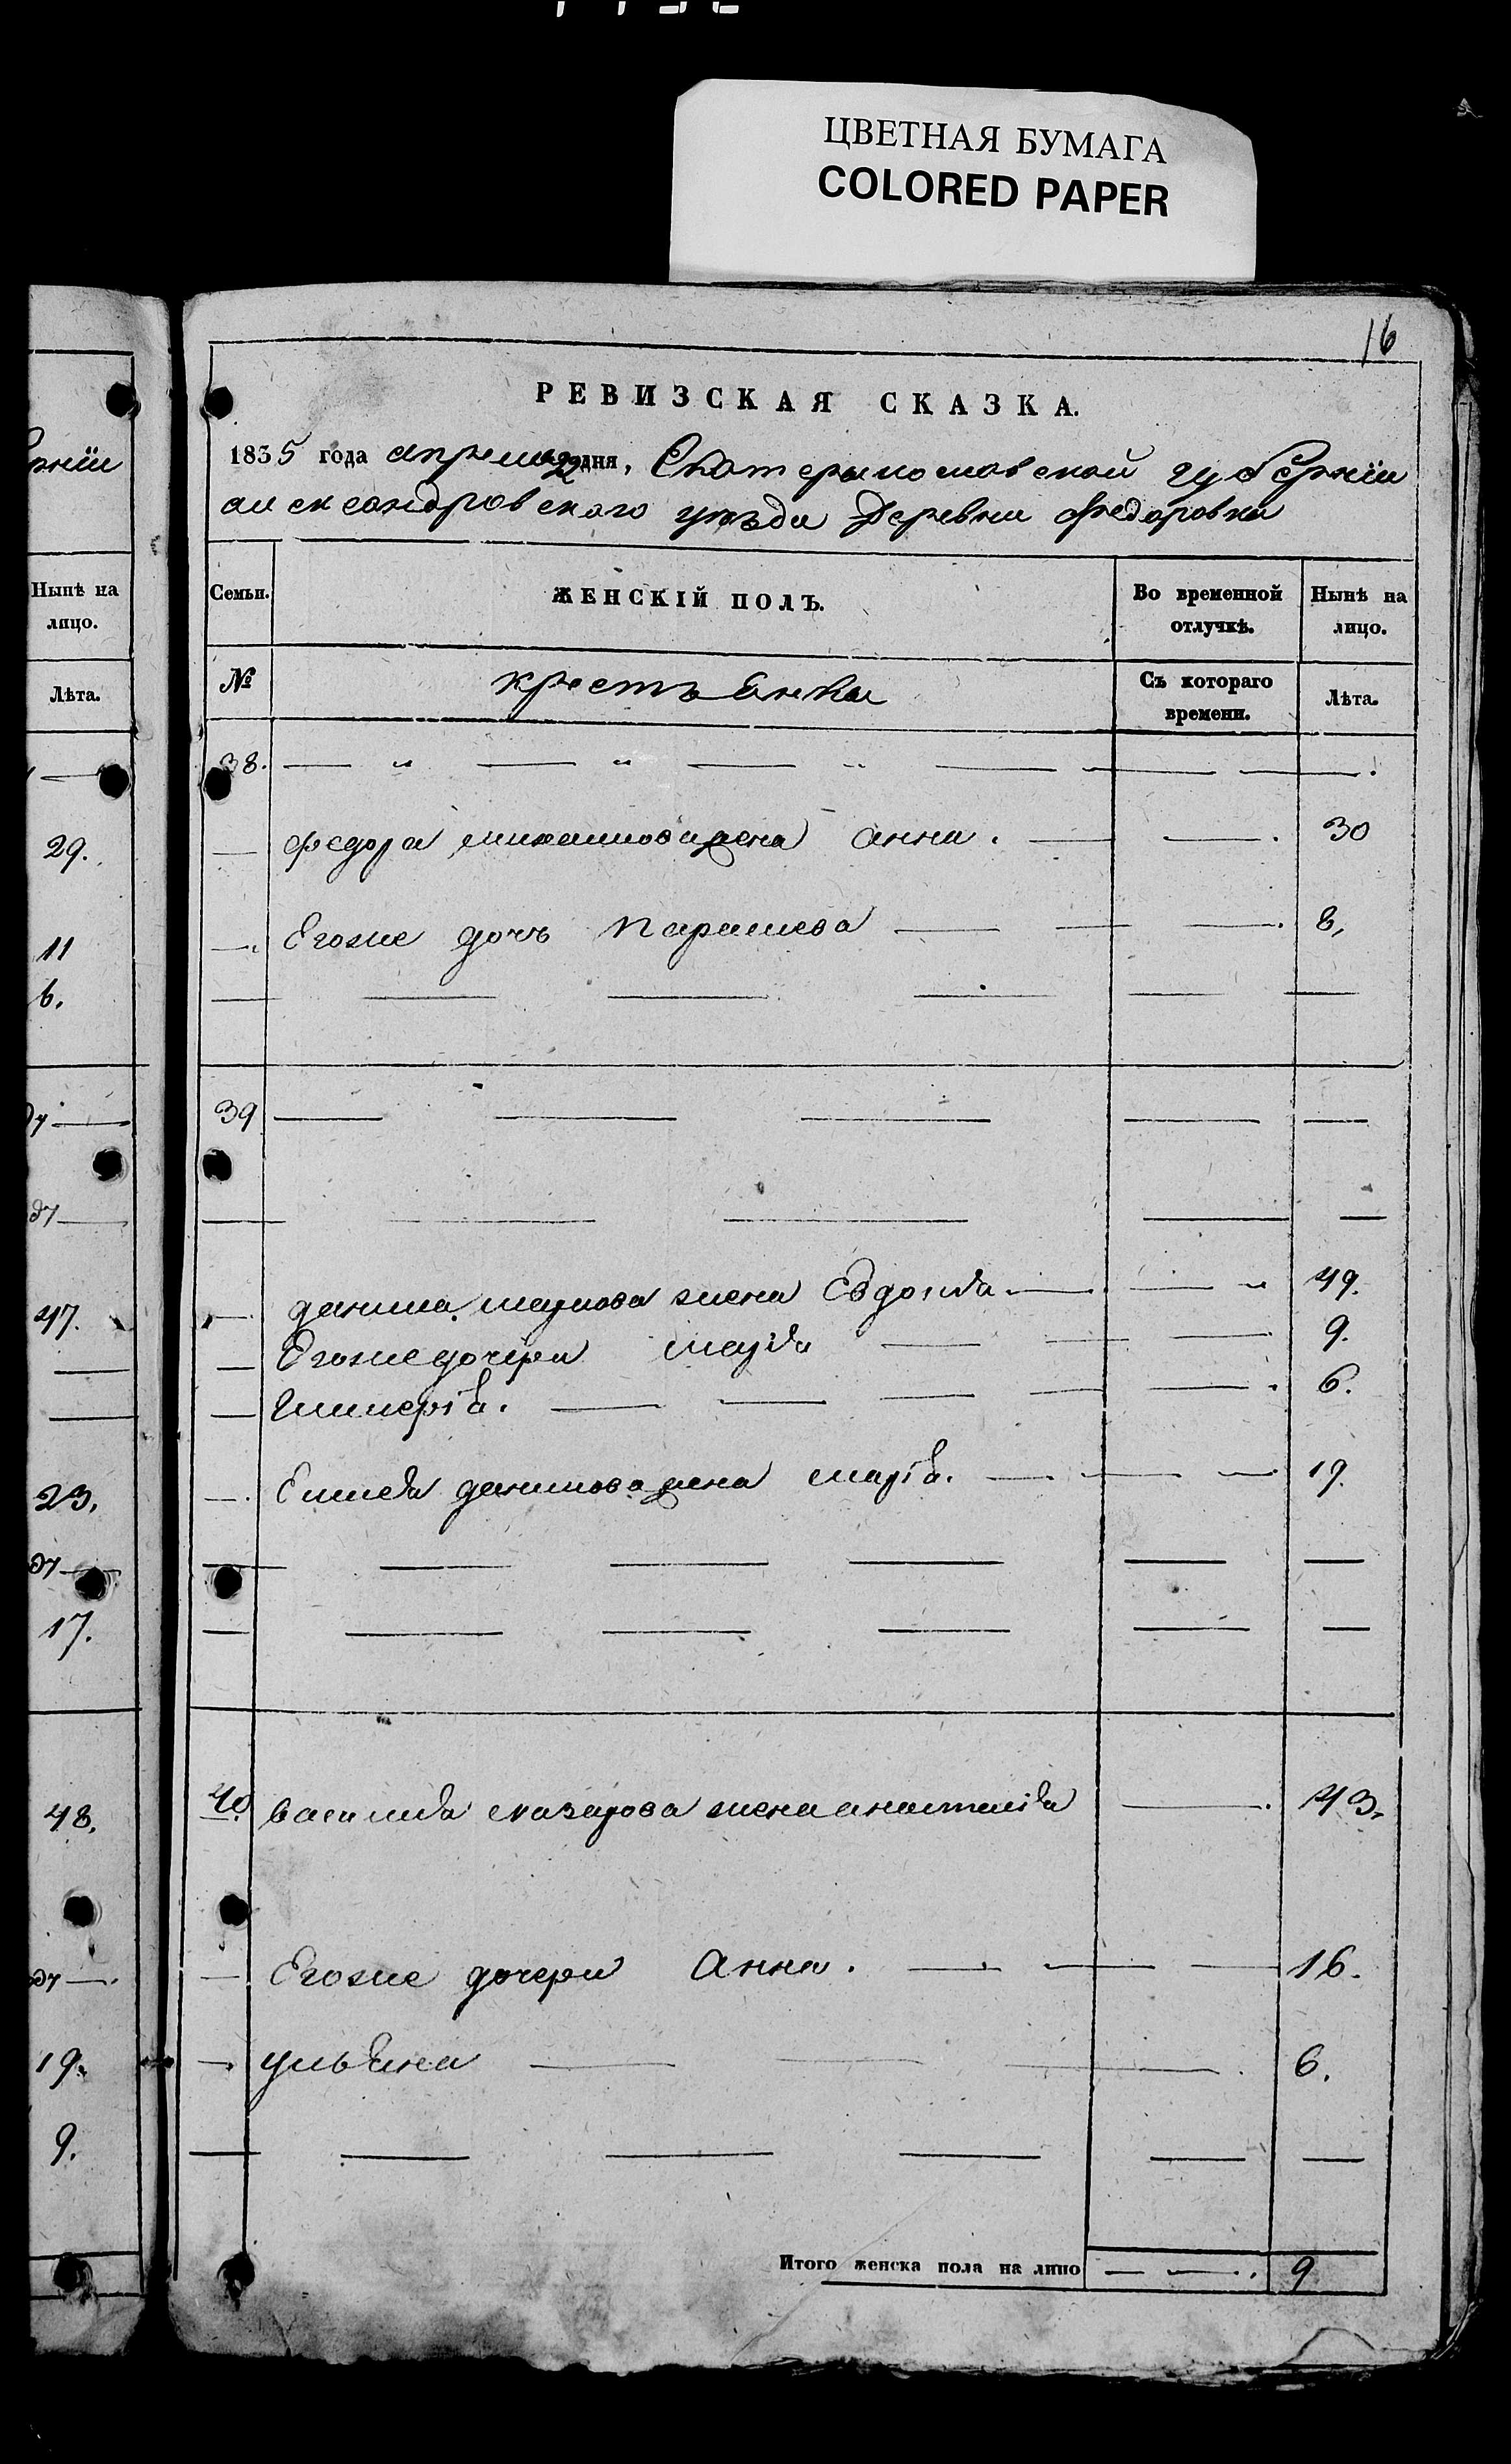 ЦВЕТНАЯ БУМАГА
COLORED PAPER
16
РЕВИЗСКАЯ СКАЗКА.
1835 года апреля 22 дня, Екатеринославской губернiи
александровского уезда Деревни Федоровки
Семьи. ЖЕНСКІЙ ПОЛЪ. Во временной отлучкѣ. Нынѣ на лицо.
№ крестьянки Съ котораго времени. Лѣта.
38.
федора михайлова жена анна. 30
Егоже дочь Параскева 8,
39
данила жена Евдокiя 49.
Егоже дочери марiя 9.
Гликерiя. 6.
Елисея данилова жена марiя. 19.
40 василия назарова жена анастасiя 43.
Егоже дочери Анна. 16.
ульяна 6.
Итого женска пола на лицо 9
рнiи
Нынѣ на
лицо.
Лѣта.
29.
11
6.
47.
23.
17.
48.
19.
9.